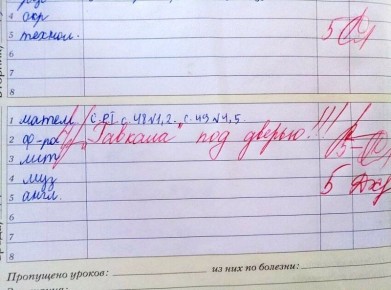 5
6
7
8
технол.
5
1 матем С. РТ. с. 48 №1, 2. с. 49 №4, 5.
2 ф-ра „Гавкала" под дверью!!!
3 лит 5
4 муз
5 англ. 5
6
7
8
Пропущено уроков: из них по болезни: